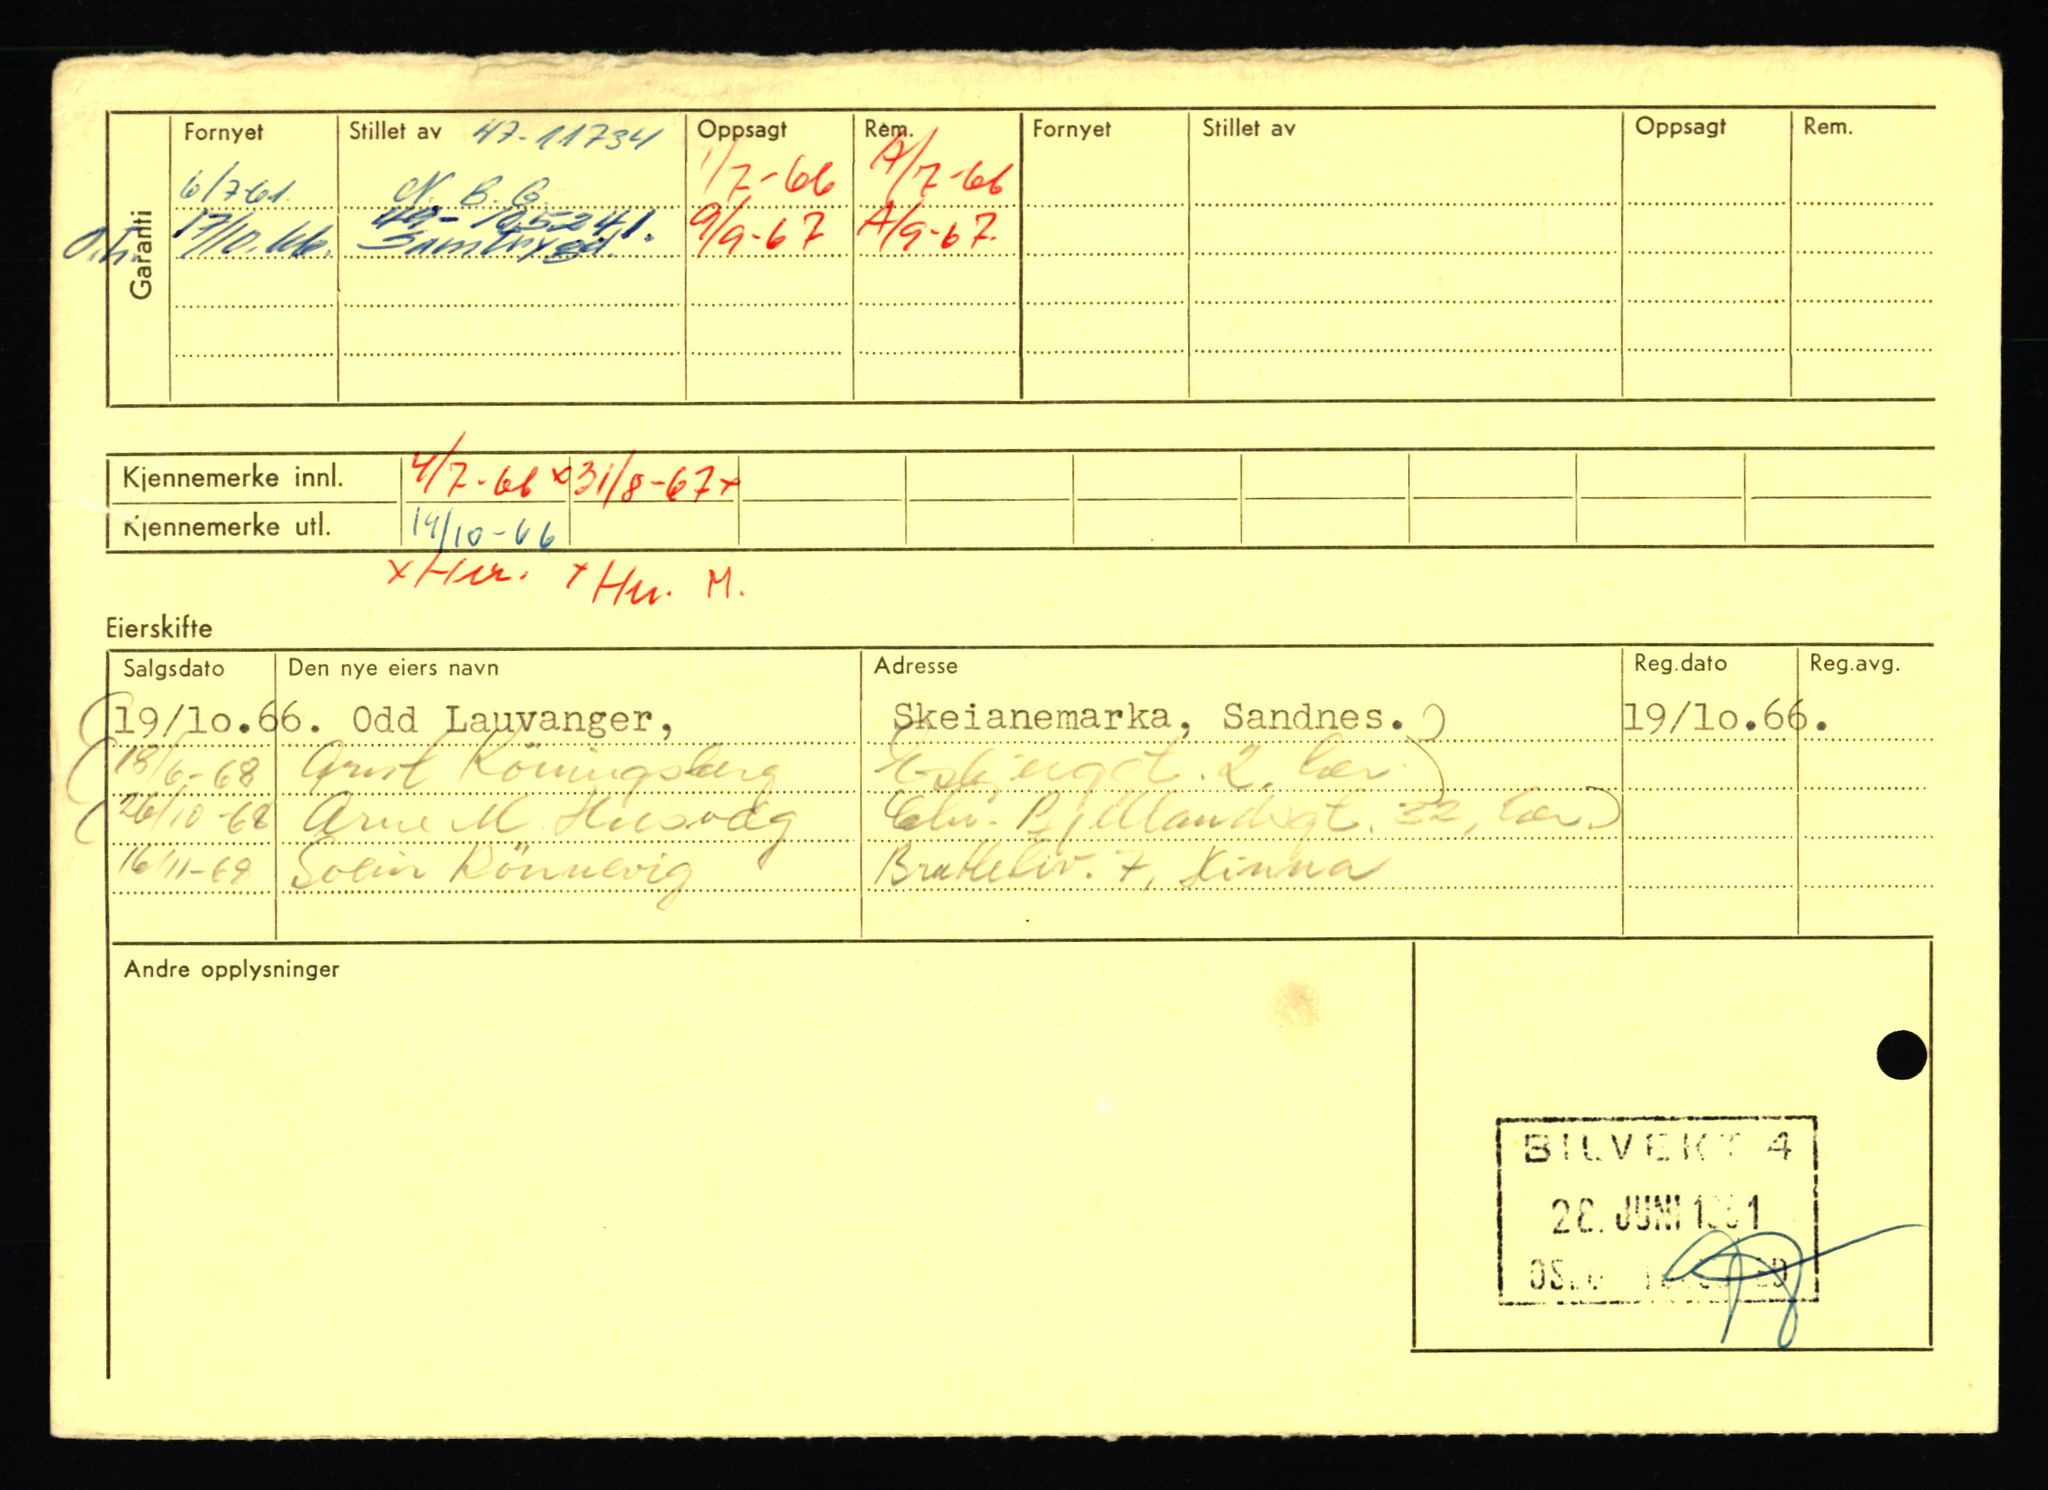 Fornyet Stillet av 47-11734 Oppsagt Rem. Fornyet Stillet av Oppsagt Rem.
6/7-61. N. B. C. 1/7-66 A/7-66
17/10.66. 49-105241. 9/9-67 A/9-67.
Samtrygd.
Garanti
Kjennemerke innl. 4/7-66 x 31/8-67 x
Kjennemerke utl. 14/10-66
x Hu. x Hu. M.
Eierskifte
Salgsdato Den nye eiers navn Adresse Reg.dato Reg.avg.
(19/1o.66. Odd Lauvanger, Skeianemarka, Sandnes.) 19/1o.66.
(18/6-68 Arvst Köningsberg Esbjergt. 2, her.)
(26/10-68 Arne M. Husvæg Chr. Bjellandsgt. 32, her)
16/11-68 Svein Rönnevig Brattebv. 7, Hinna
Andre opplysninger
BILVEKT 4
28. JUNI 1961